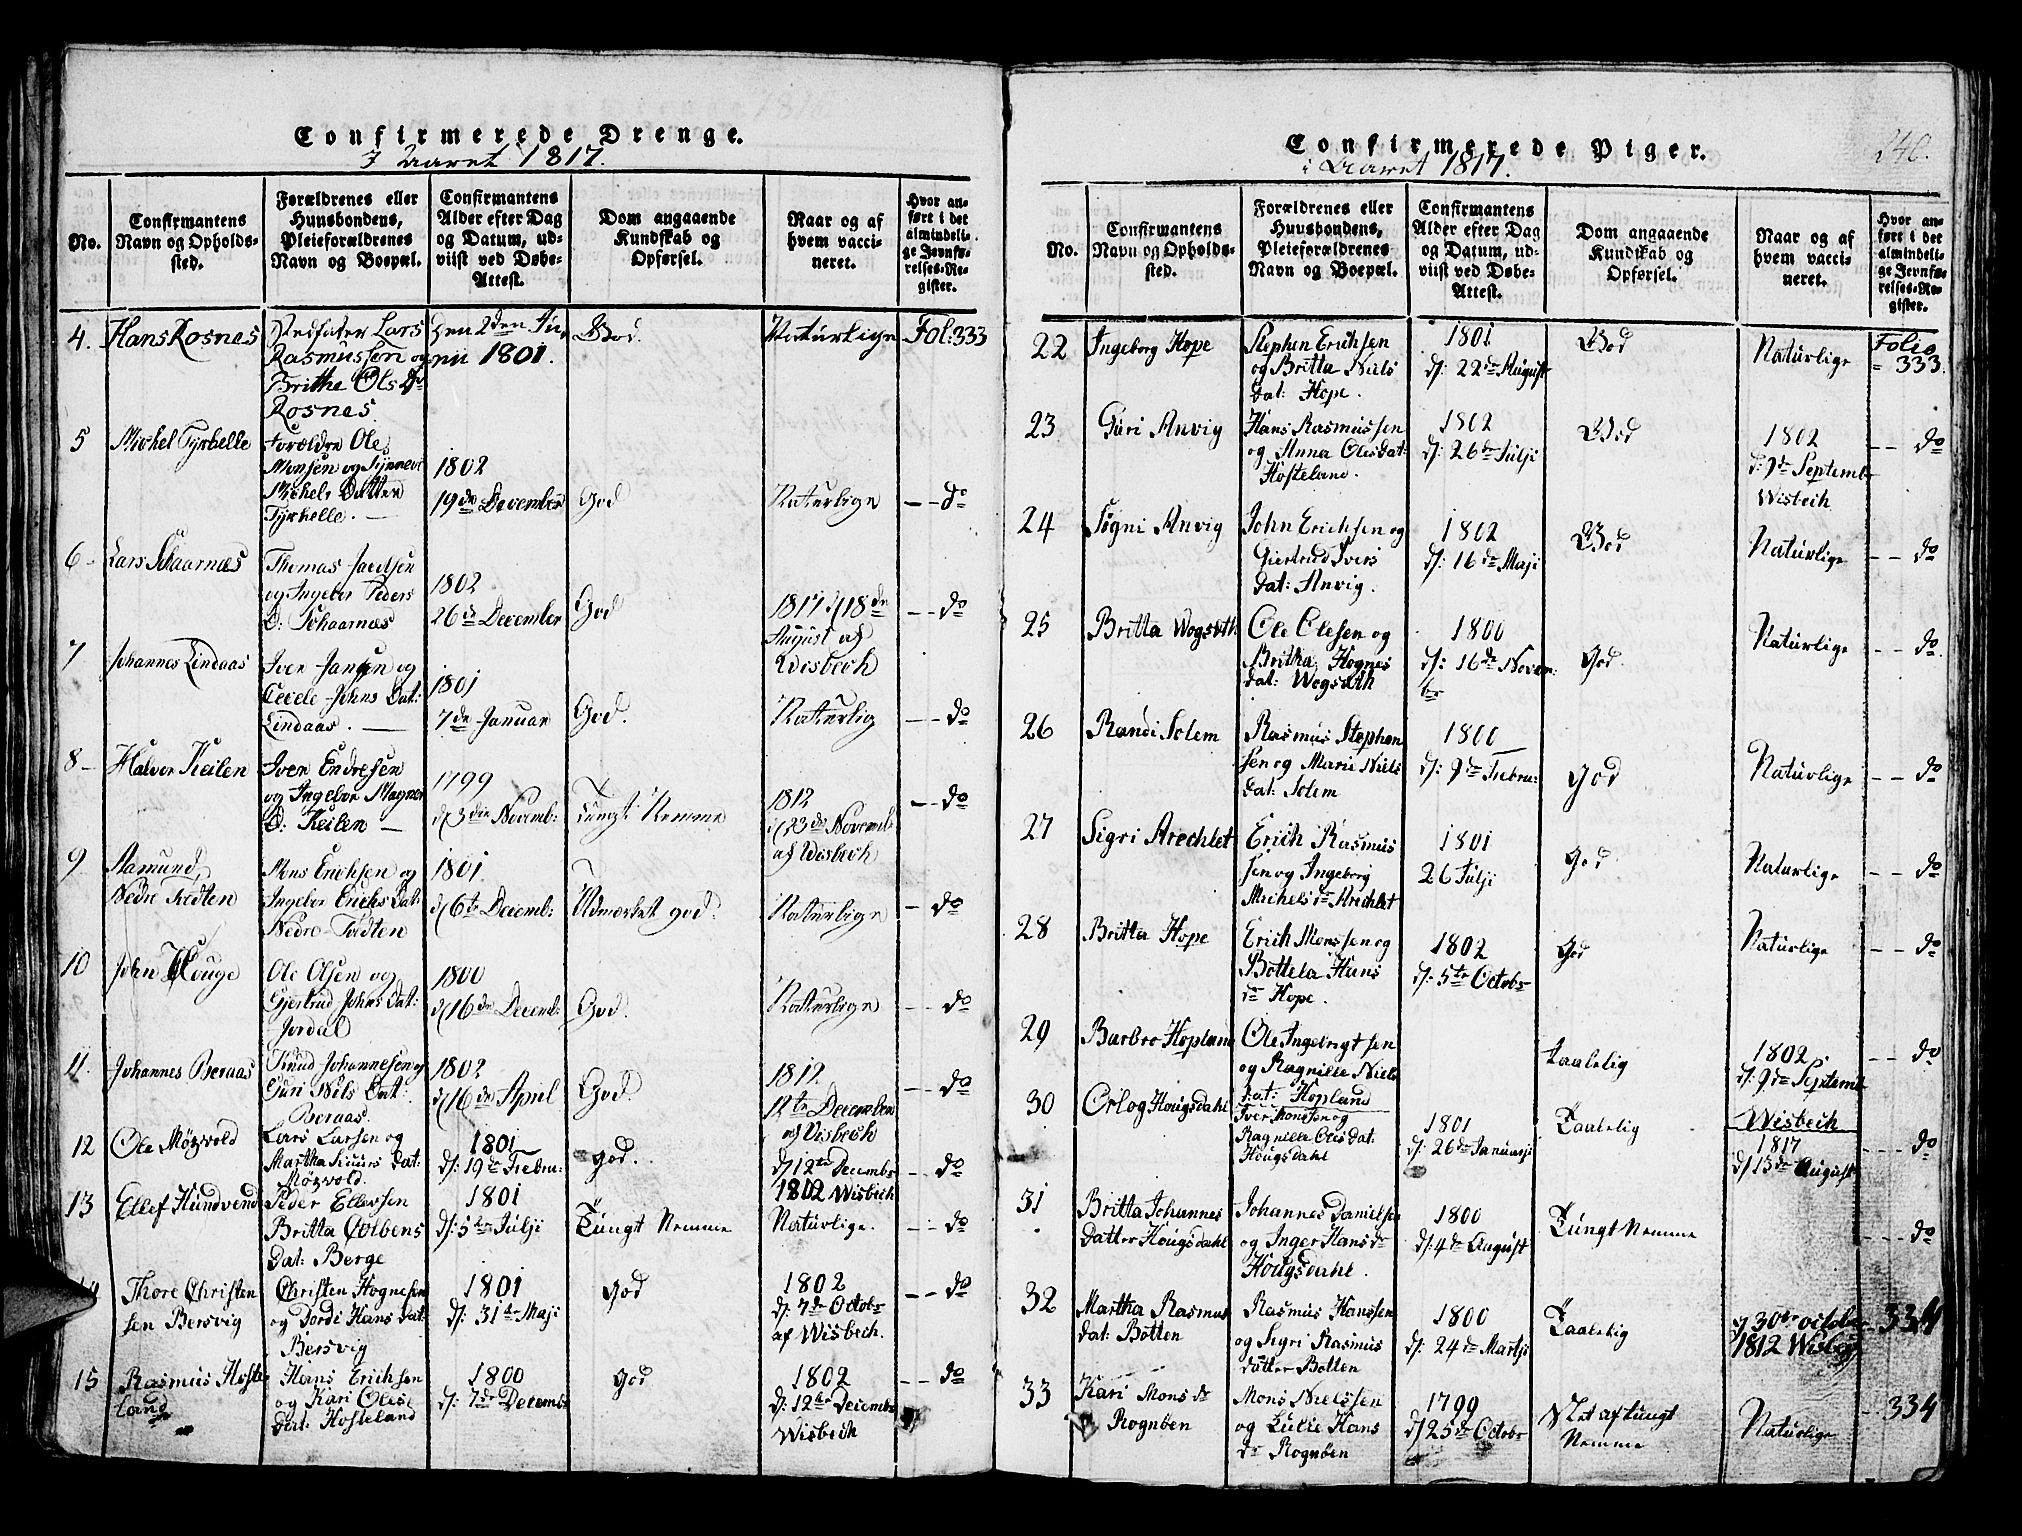 Confirmerede Drenge.
I Aaret 1817.
No.
Confirmantens
Navn og Opholds-
sted.
Forældrenes eller
Huusbondens,
Pleieforældrenes
Navn og Boepæl.
Confirmantens
Alder efter Dag
og Datum, ud-
viist ved Døbe-
Attest.
Dom angaaende
Kundskab og
Opførsel.
Naar og af
hvem vacci-
neret.
Hvor an-
ført i det
almindeli-
ge Jevnfø-
relses-Re-
gister.
4. Hans Rosnes
Stedfater Lars
Rasmussen og
Brithe Ols Dr
Rosnes
Den 2den Ju-
nii 1801.
God.
Naturlign
Fol: 333
5 Michel Tyrhelle
Forældre Ole
Monsen og Synnevi
Michels Datter
Tyrhelle.
1802
19de December
God
Naturlige
do
6 Lars Schaarnæs
Thomas
og Ingebor Peders
D: Schaarnæs
1802
26de December
God
1817 d/ 18de
August af
Wisbech
do
7 Johannes Lindaas
Iver Jansen og
Cecele Johns Dat:
Lindaas.
1801
7de Januar
God.
Naturlig
do
8 Halvor Keilen
Iver Endresen
og Ingebor Magne
D: Keilen
1799
d/ 3die Novemb:
Tungt Nemme
1812
d/ 23de Novemb
af Wisbech
do
9 Aamund
Nedre Tvedten
Mons Erichsen og
Ingebor Erichs Dat
Nedre Tvedten
1801
d/ 6te Decemb:
Udmerket god.
Naturlige
do
10 John Houge
Ole Olsen og
Gjertrud Johns Dat:
Jordal
1800
d/ 16de Decemb:
God.
Naturlige
do
11. Johannes Beraas
Knud Johannesen og
Guri Nils Dat.
Beraas.
1802
d/ 16de April
God
1812
12te December
af Wisbech
do
12 Ole Mözvold
Lars Larsen og
Martha Dat:
Mözvold.
1801
d/: 19de Febru:
god.
d/ 12te Decembr
1802 Wisbech
do
13 Ellef Hundvend
Peder Ellevsen
Britta Colbens
Dat: Berge
1801
d/: 5te Julji
Tungt Nemme
Naturlige.
do
14 Thore Christen
sen Bersvig
Christen Hognesen
og Dordi Hans dat:
Bersvig
1801
d/: 31te Maji
God
1802
d/: 7de Octobr
af Wisbech.
do
15 Rasmus Hoste
land
Hans Erichsen
og Kari Oles
dat: Hosteland
1800
d/: 7de Decemb
god
1802
d/: 12te Decembr
Wisbech
do
Confirmerede Piger.
i Aaret 1817.
240.
No.
Confirmantens
Navn og Opholds-
sted.
Forældrenes eller
Huusbondens,
Pleieforældrenes
Navn og Boepæl.
Confirmantens
Alder efter Dag
og Datum, ud-
viist ved Døbe-
Attest.
Dom angaaende
Kundskab og
Opførsel.
Naar og af
hvem vacci-
neret.
Hvor an-
ført i det
almindeli-
ge Jevnfø-
relses-Re-
gister.
22 Ingeborg Hope
Stephen Erichsen
og Britta Niels
dat: Hope.
1801
d/: 22de August
God
Naturlige
Folio
333.
23 Guri Anvig
Hans Rasmussen
og Anna Olesdat:
Hosteland.
1802
d/: 26de Julji
God
1802
d: 9de Septembr
Wisbech
do
24 Sögni Anvig
John Erichsen og
Giertrud Ivers
dat: Anvig.
1802
d/: 16de Maji
God
Naturlige
do
25 Britta Wogsöth
Ole Olesen og
Britha Hognes
dat: Wogsöth
1800
d/: 16de Novem-
br
God.
Naturlige
do
26 Randi Solem
Rasmus Stephen
sen og Marie Niels
dat: Solem
1800
d/: 9de Febru:
god
Naturlige
do
27 Sigri Arechlet
Erich Rasmus
sen og Ingeborg
Michels dr Arechlet
1801
26 Julji
god
Naturlige
do
28 Britta Hope
Erich Monssen og
Böttela Hans
dr Hope.
1802
d/: 5te Octobr
god
Naturlige
do
29 Barbro Hopland
Ole Ingebrigtsen
og Ragnille Niels
dat: Hopland
Taalelig
1802.
d/: 9de Septemb
Wisbech
do
30 Orlog Hougsdahl
Iver Monsen og
Ragnille Olesdat:
Hougsdahl
1801
d/: 26de Januarji
Taalelig
1817
d/ 13de August
do
31 Britta Johannes
datter Hougsdahl
Johannes Danielsen
og Inger Hans dr
Hougsdahl.
1800
d/: 4de August
Tungt Nemme
do
32 Martha Rasmus
dat: Botten
Rasmus Hanssen
og Sigri Rasmus
datter Botten
1800
d/: 24de Martji
Taalelig
d/ 30te october
1812 Wisbech
334
33 Kari Mons dr
Rognöen
Mons Nielssen
og Lulie Hans
dr Rognöen
1799
d/ 25de Octobr
Slet af tungt
Nemme
Naturlige
334